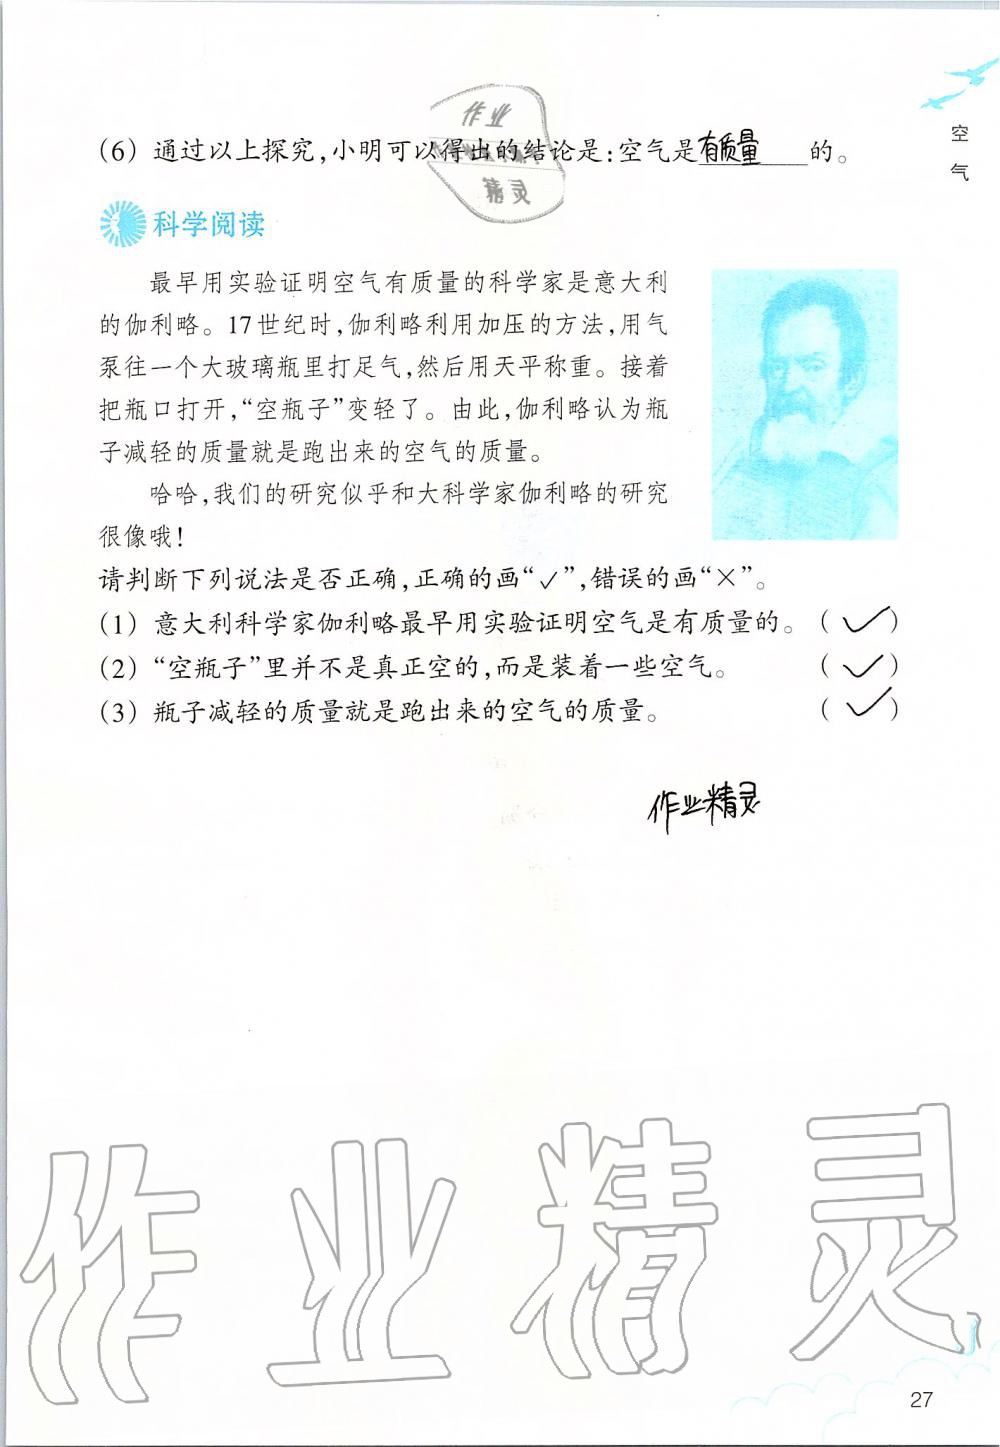 空气
作业
(6) 通过以上探究,小明可以得出的结论是:空气是有质量的。
精灵
科学阅读
最早用实验证明空气有质量的科学家是意大利
的伽利略。17世纪时,伽利略利用加压的方法,用气
泵往一个大玻璃瓶里打足气,然后用天平称重。接着
把瓶口打开,“空瓶子”变轻了。由此,伽利略认为瓶
子减轻的质量就是跑出来的空气的质量。
哈哈,我们的研究似乎和大科学家伽利略的研究
很像哦!
请判断下列说法是否正确,正确的画“✓”,错误的画“×”。
(1) 意大利科学家伽利略最早用实验证明空气是有质量的。 (✓)
(2) “空瓶子”里并不是真正空的,而是装着一些空气。 (✓)
(3) 瓶子减轻的质量就是跑出来的空气的质量。 (✓)
作业精灵
作业精灵
27